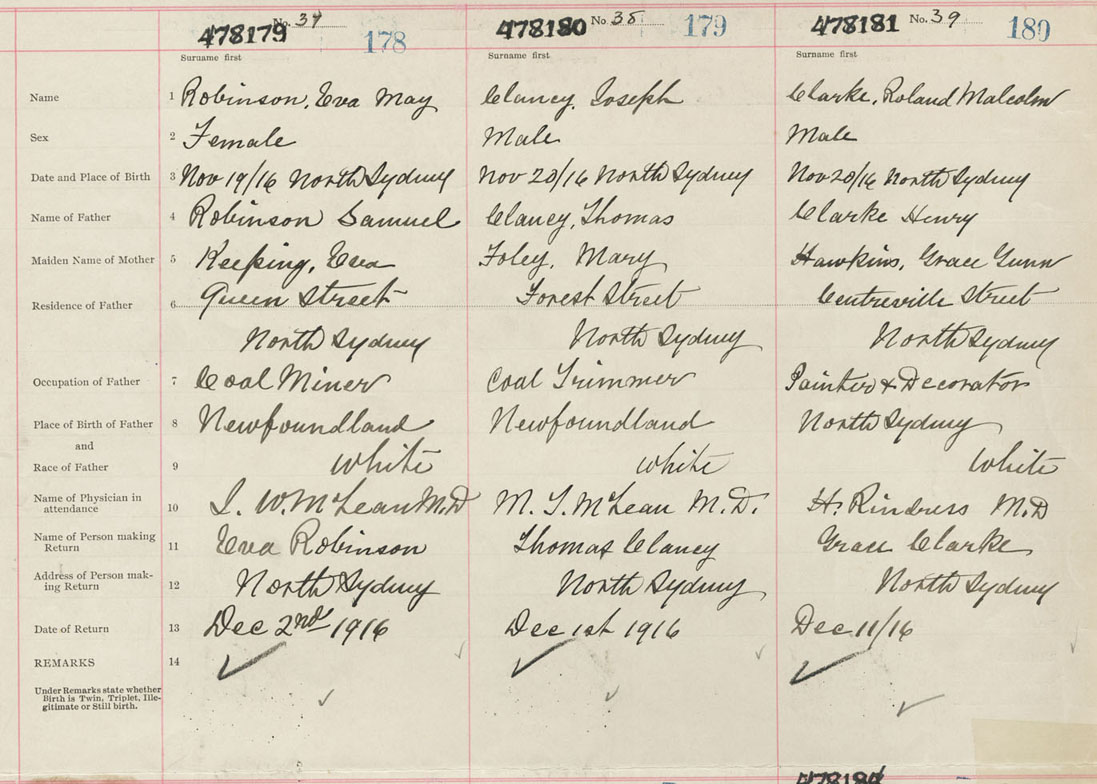 478179 No. 37 178 478180 No 38 179 478181 No. 39 180
Surname first Surname first Surname first
Name 1 Robinson, Eva May Clancy, Joseph Clarke, Roland Malcolm
Sex 2 Female Male Male
Date and Place of Birth 3 Nov 19/16 North Sydney Nov 20/16 North Sydney Nov 20/16 North Sydney
Name of Father 4 Robinson Samuel Clancy, Thomas Clarke Henry
Maiden Name of Mother 5 Keeping, Eva Foley, Mary Hawkins, Grace Gunn
Residence of Father 6 Queen Street Forest Street Centreville Street
North Sydney North Sydney North Sydney
Occupation of Father 7 Coal Miner Coal Trimmer Painter & Decorator
Place of Birth of Father 8 Newfoundland Newfoundland North Sydney
and
Race of Father 9 White White White
Name of Physician in
attendance 10 L. W. McLean M.D M. T. McLean M.D. H. Rindress M.D
Name of Person making
Return 11 Eva Robinson Thomas Clancy Grace Clarke
Address of Person mak-
ing Return 12 North Sydney North Sydney North Sydney
Date of Return 13 Dec 2nd 1916 Dec 1st 1916 Dec 11/16
REMARKS 14
Under Remarks state whether
Birth is Twin, Triplet, Ille-
gitimate or Still birth.